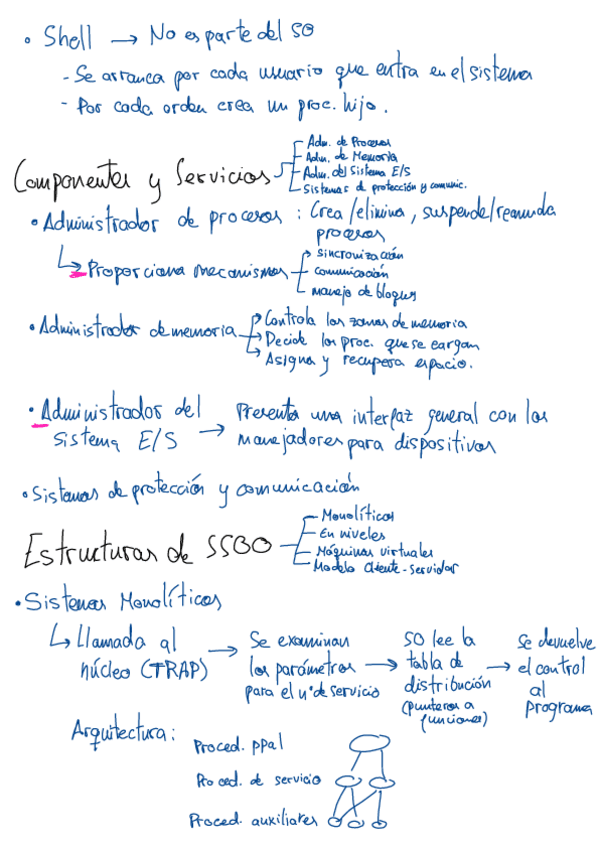 • Shell → No es parte del SO
- Se arranca por cada usuario que entra en el sistema
- Por cada orden crea un proc. hijo.
Componentes y Servicios
Adm. de Procesos
Adm. de Memoria
Adm. del Sistema E/S
Sistemas de protección y comunic.
• Administrador de procesos : Crea/elimina, suspende/reanuda
procesos
↳ Proporciona mecanismos
sincronización
comunicación
manejo de bloqueos
• Administrador de memoria
Controla las zonas de memoria
Decide los proc. que se cargan
Asigna y recupera espacio.
• Administrador del
sistema E/S
→ Presenta una interfaz general con los
manejadores para dispositivos
• Sistemas de protección y comunicación
Estructuras de SSOO
Monolíticos
En niveles
Máquinas virtuales
Modelo Cliente-servidor
• Sistemas Monolíticos
↳ Llamada al
núcleo (TRAP)
→ Se examinan
los parámetros
para el nº de servicio
→ SO lee la
tabla de
distribución
(punteros a
funciones)
→ Se devuelve
el control
al
programa
Arquitectura:
Proced. ppal
Proced. de servicio
Proced. auxiliares